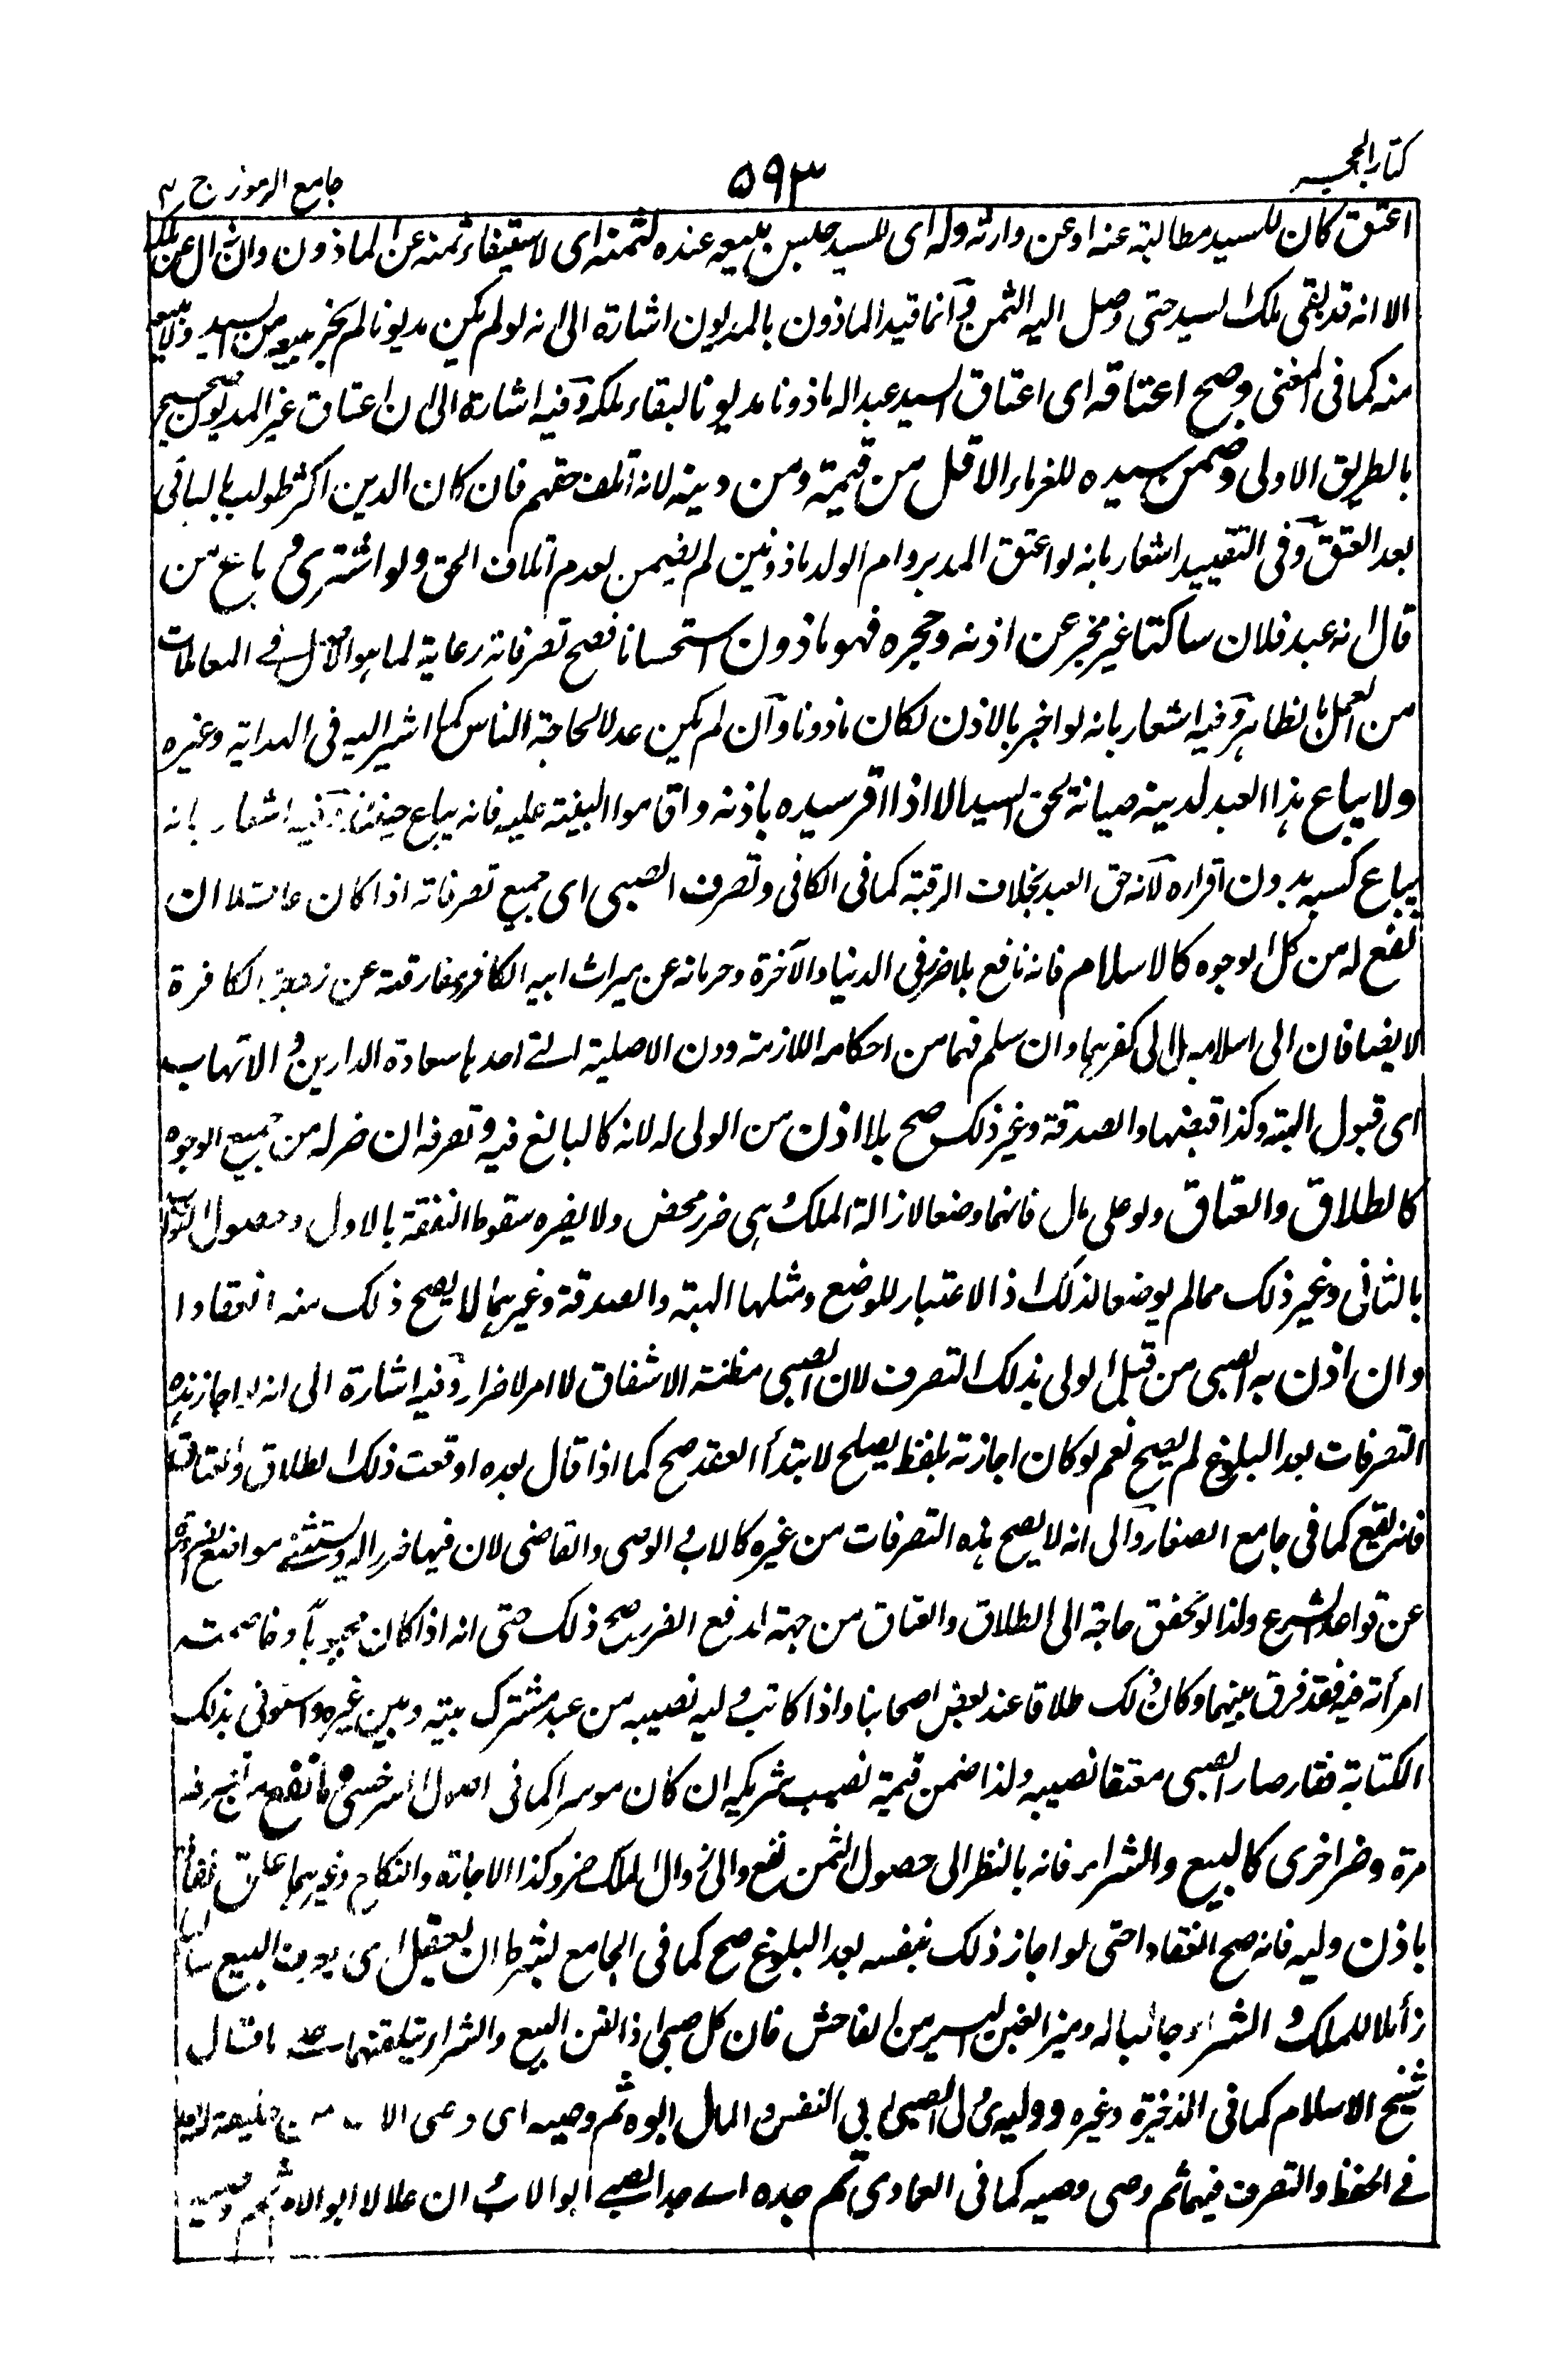 كتاب الحجر
٥٩٣
جامع الرموز ج ٣
اعتق كان للسيد مطالبته عنه او عن وارثه وله اى للسيد حبس مبيعه عنده لثمنه اى لاستيفاء ثمنه عن الماذون وان زال عن ملكه
الا انه قد بقى ملك السيد حتى وصل اليه الثمن وآنما قيد الماذون بالمديون اشارة الى انه لو لم يكن مديونا لم يجز مبيعه من السيد ولا بيعه
منه كما فى المغنى وصح اعتاقه اى اعتاق السيد عبدا له ماذونا مديونا لبقاء ملكه وفيه اشارة الى ان اعتاق غير المديون صحيح
بالطريق الاولى وضمن سيده للغرماء الاقل من قيمته ومن دينه لانه اتلف حقهم فان كان الدين اكثر طولب بالباقى
بعد العتق وفى التقييد اشعار بانه لو اعتق المدبر وام الولد ماذونين لم يضمن لعدم اتلاف الحق ولو اشترى و باع من
قال انه عبد فلان ساكتا غير مخبر عن اذنه وحجره فهو ماذون استحسانا فصح تصرفاته رعاية لما هو الاصل فى المعاملات
من العمل بالظاهر وفيه اشعار بانه لو اخبر بالاذن لكان ماذونا وآن لم يكن عدلا لحاجة الناس كما اشير اليه فى الهداية وغيره
ولا يباع هذا العبد لدينه صيانة لحق السيد الا اذا اقر سيده باذنه واقاموا البينة عليه فانه يباع حينئذ وفيه اشعار بانه
يباع كسبه بدون اقراره لآنه حق العبد بخلاف الرقبة كما فى الكافى وتصرف الصبى اى جميع تصرفاته اذا كان عاقلا ان
نفع له من كل الوجوه كالاسلام فانه نافع بلا ضرر فى الدنيا والآخرة وحرمانه عن ميراث ابيه الكافر ومفارقته عن زوجته الكافرة
لا يضافان الى اسلامه بل الى كفرهما وان سلم فهما من احكامه اللازمة دون الاصلية التى احدها سعادة الدارين و الاتهاب
اى قبول الهبة وكذا قبضها والصدقة وغير ذلك صح بلا اذن من الولى له لانه كالبالغ فيه وتصرفه ان ضر له من جميع الوجوه
كالطلاق والعتاق ولو على مال فانهما وضعا لازالة الملك وهى ضرر محض ولا يضره سقوط النفقة بالاول وحصول الثواب
بالثانى وغير ذلك مما لم يوضعا لذلك اذ الاعتبار للوضع ومثلها الهبة والصدقة وغيرهما لا يصح ذلك منه انعقادا
وان اذن به الصبى من قبل الولى بذلك التصرف لان الصبى مظنة الاشفاق لا امر الاضرار وفيه اشارة الى انه لو اجاز هذه
التصرفات بعد البلوغ لم يصح نعم لو كان اجازته بلفظ يصلح لابتدأ العقد صح كما اذا قال بعده اوقعت ذلك الطلاق والعتاق
فانه يقع كما فى جامع الصغار وآلى انه لا يصح هذه التصرفات من غيره كالاب والوصى والقاضى لان فيها ضررا له ويستثنى مواضع الضرورة
عن قواعد الشرع ولذا لو تحقق حاجة الى الطلاق والعتاق من جهة الدفع الضرر صح ذلك حتى انه اذا كان مجبوبآ وخاصمته
امرأته فيه فقد فرق بينهما وكان ذلك طلاقا عند بعض اصحابنا واذا كاتب وليه نصيبه من عبد مشترك بينه وبين غيره واستوفى بذلك
الكتابة فقد صار الصبى معتقا نصيبه ولذا ضمن قيمة نصيب شريكه ان كان موسرا كما فى اصول السرخسى و ما نفع من تصرفه
مرة وضر اخرى كالبيع والشراء فانه بالنظر الى حصول الثمن نفع والى زوال الملك ضرر وكذا الاجارة والنكاح وغيرهما علق نفاذه
باذن وليه فانه صح انعقادا حتى لو اجاز ذلك بنفسه بعد البلوغ صح كما فى الجامع بشرط ان يعقل اى يعرف البيع سالبا
زائلا للملك و الشراء جالبا له ويميز الغبن اليسير من الفاحش فان كل صبى اذا لقن البيع والشراء يتلقنهما قال
شيخ الاسلام كما فى الذخيرة وغيره ووليه اى ولى الصبى اى فى النفس و المال ابوه ثم وصيه اى وصى الاب
فى الحفظ والتصرف فيهما ثم وصى وصيه كما فى العمادى ثم جده اى جد الصبى ابو الاب وان علا لا ابو الام ثم وصيه